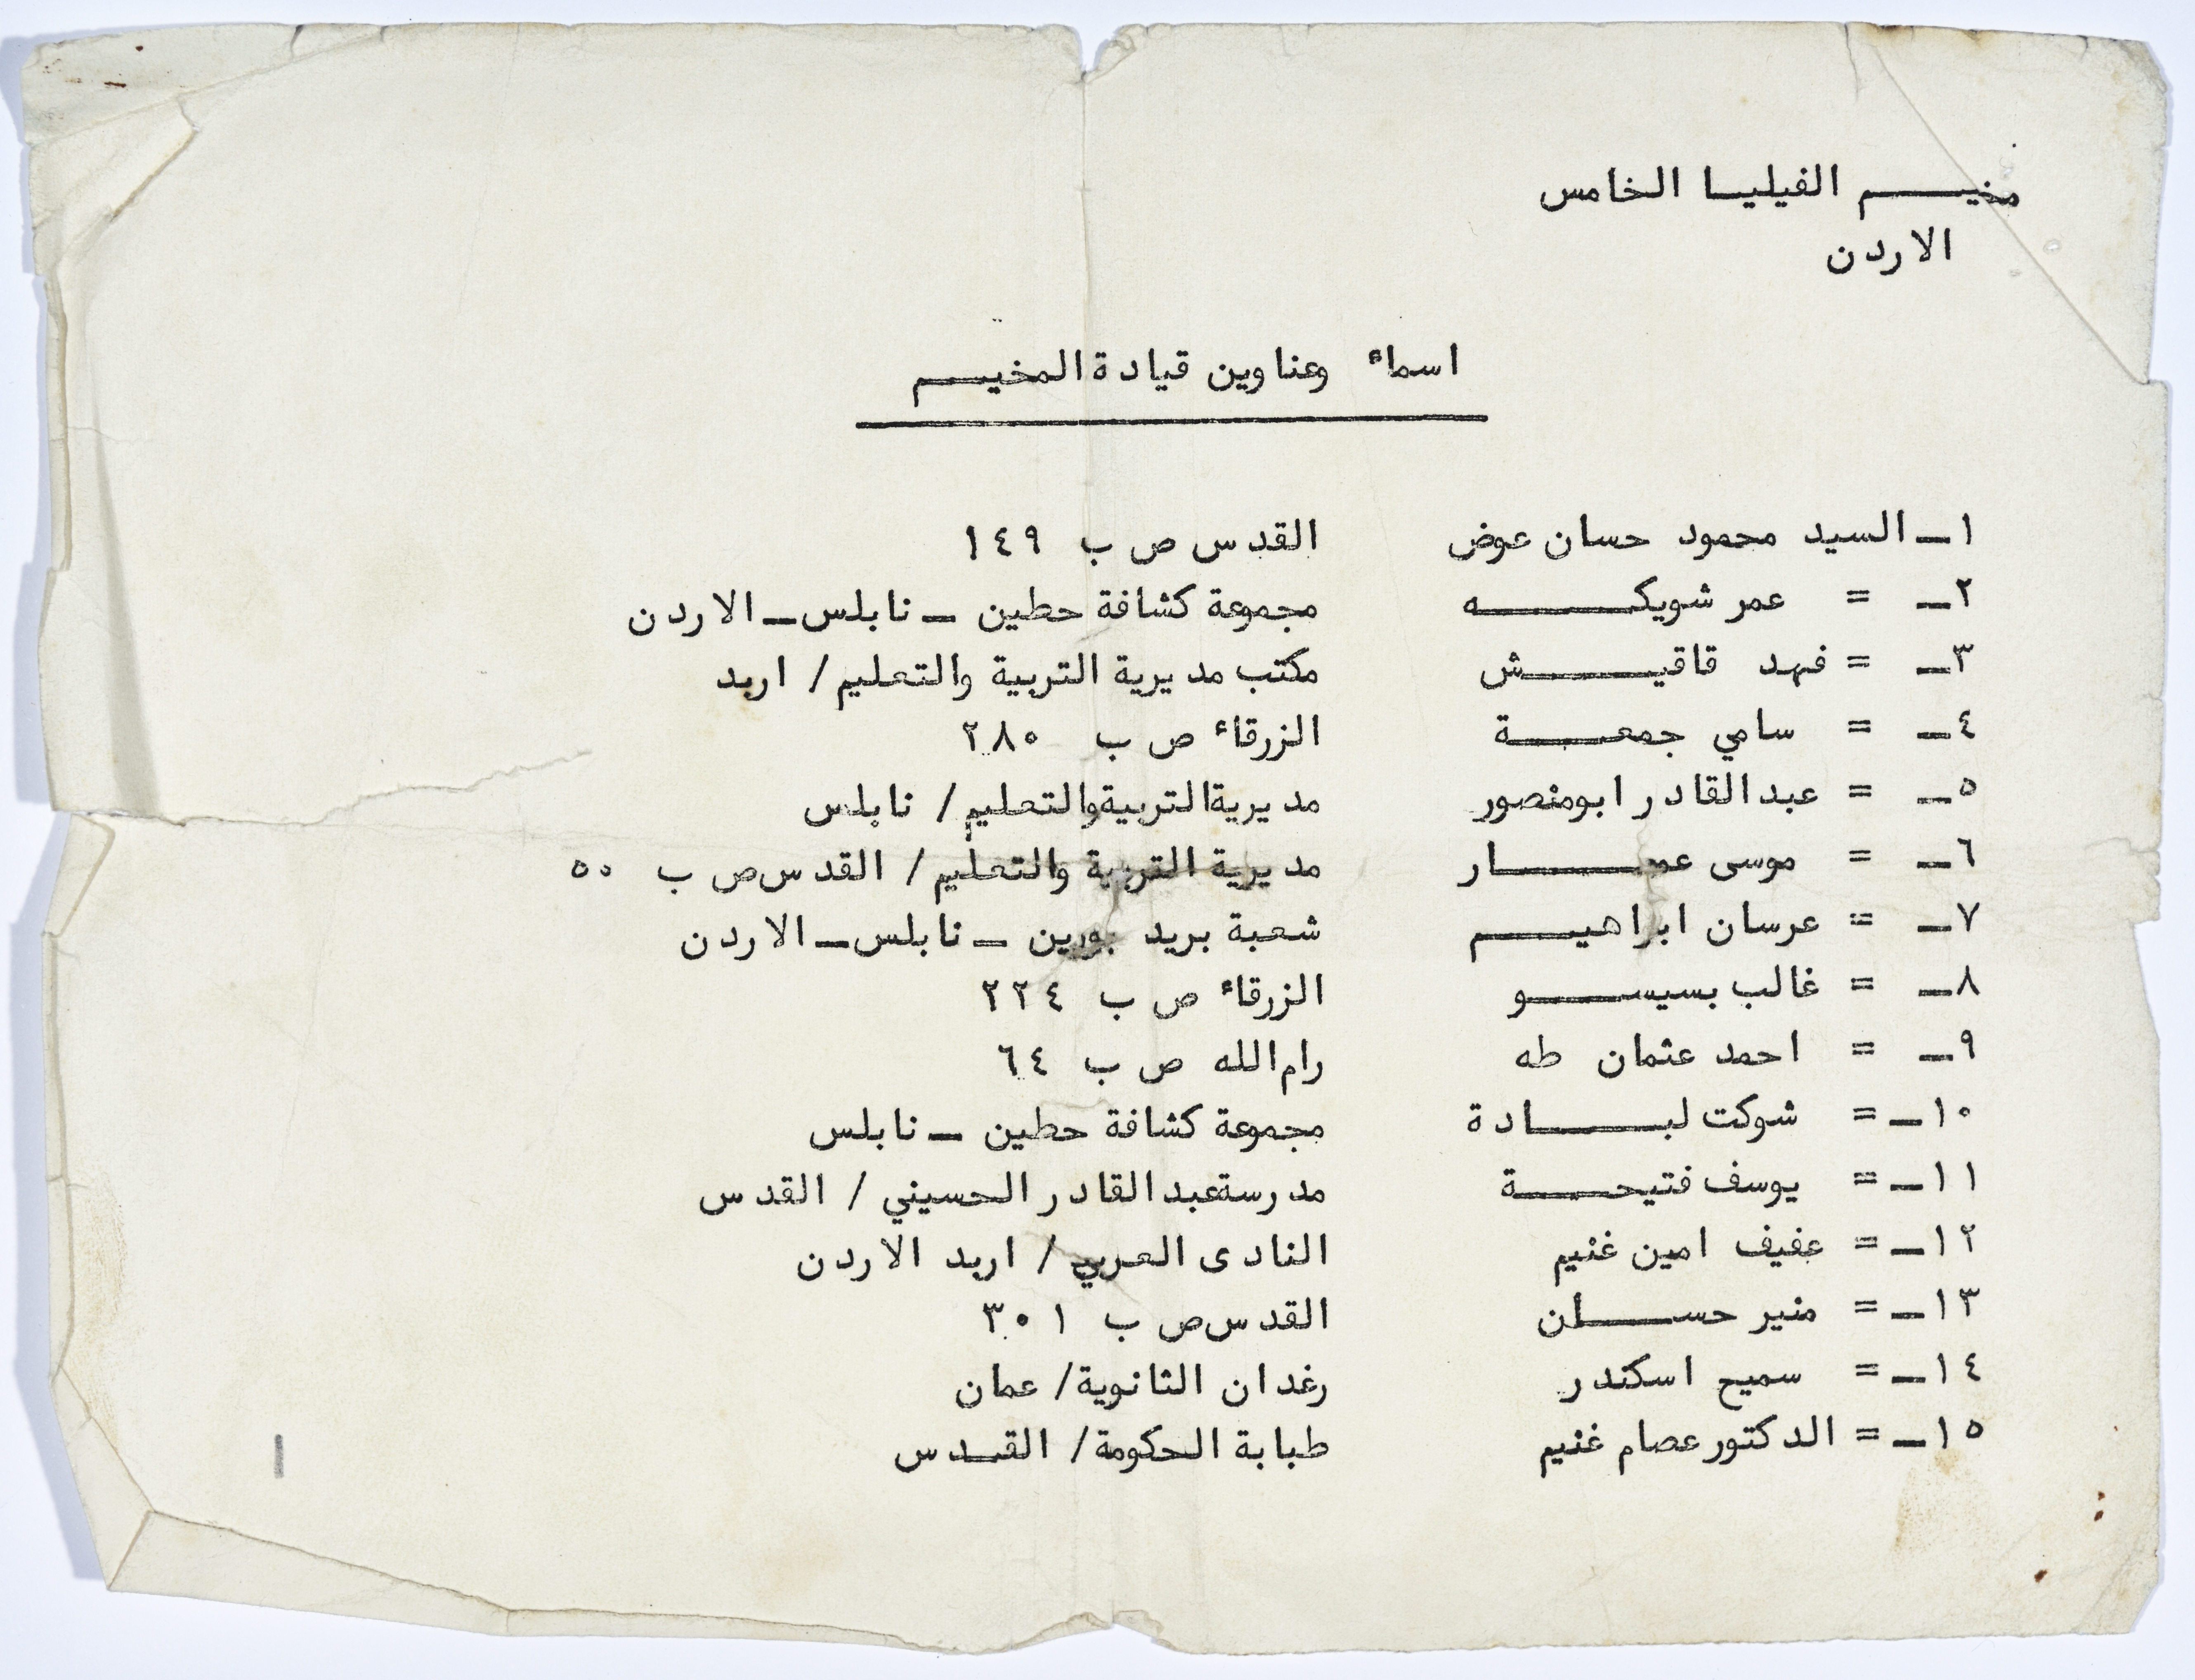 مخيم الفيليا الخامس
الاردن
اسماء وعناوين قيادة المخيم
١ـ السيد محمود حسان عوض القدس ص ب ١٤٩
٢ـ = عمر شويكه مجموعة كشافة حطين ـ نابلس ـ الاردن
٣ـ = فهد قاقيش مكتب مديرية التربية والتعليم / اربد
٤ـ = سامي جمعة الزرقاء ص ب ٢٨٠
٥ـ = عبدالقادر ابومنصور مديرية التربية والتعليم / نابلس
٦ـ = موسى عمار مديرية التربية والتعليم / القدس ص ب ٥٠
٧ـ = عرسان ابراهيم شعبة بريد بورين ـ نابلس ـ الاردن
٨ـ = غالب بسيسو الزرقاء ص ب ٢٢٤
٩ـ = احمد عثمان طه رام الله ص ب ٦٤
١٠ـ = شوكت لبادة مجموعة كشافة حطين ـ نابلس
١١ـ = يوسف فتيحة مدرسة عبدالقادر الحسيني / القدس
١٢ـ = عفيف امين غنيم النادى العربي / اربد الاردن
١٣ـ = منير حسان القدس ص ب ٣٠١
١٤ـ = سميح اسكندر رغدان الثانوية / عمان
١٥ـ = الدكتور عصام غنيم طبابة الحكومة / القدس